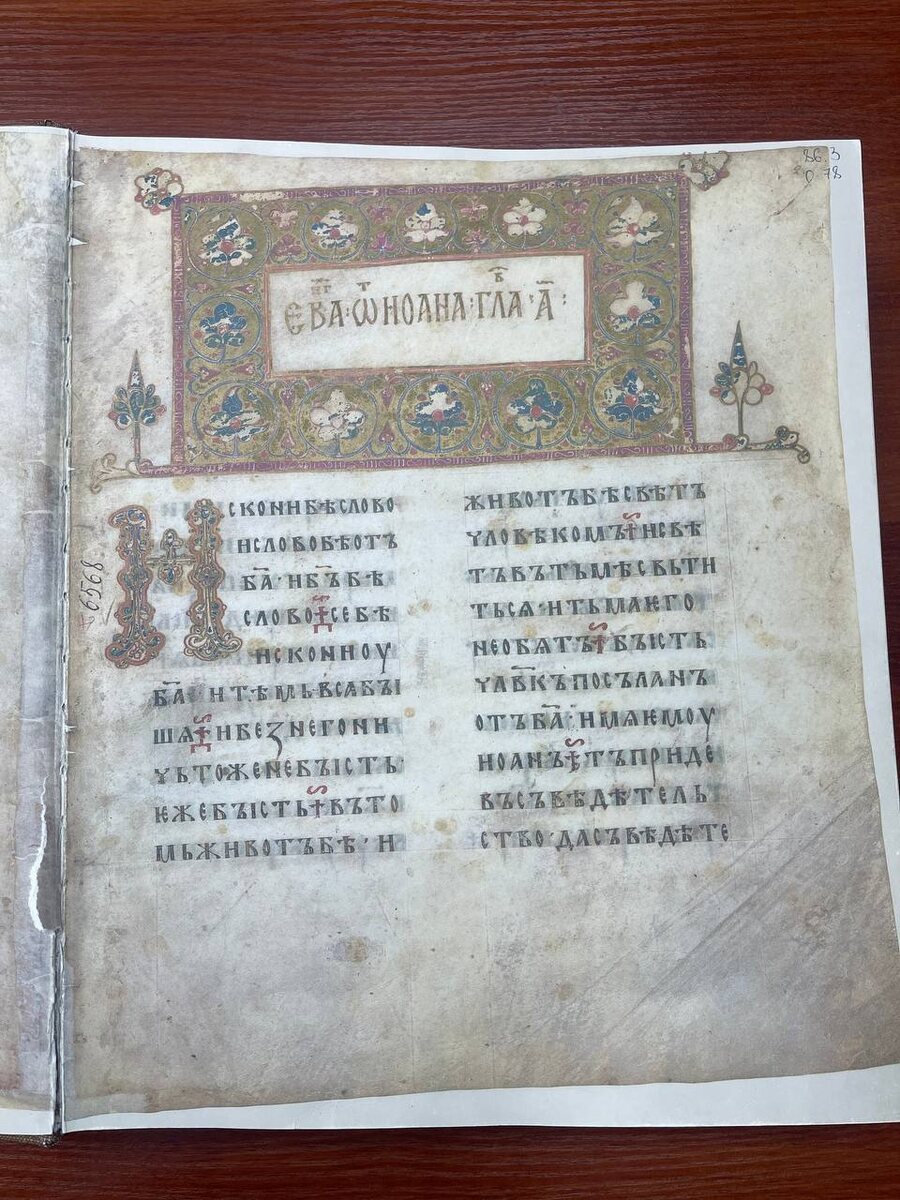 86.3
0-78
ЕВА҃НГ·Ѿ ИОАНА·ГЛА҃В·А҃:
ИСКОНИБѢСЛОВО
ИСЛОВОБѢОТЪ
БА҃·ИБ҃ЪБѢ
СЛОВО·СЕБѢ
ИСКОНИОУ
БА҃·ИТѢМЬВЬСАБꙐ
ШѦ·ИБЕЗНЕГОНИ
ЧЬТОЖЕНЕБꙐСТЬ·
ѤЖЕБꙐСТЬ·ВЪТО
МЬЖИВОТЪБѢ·И
ЖИВОТЪБѢСВѢТЪ
ЧЛОВѢКОМЪ·ИСВѢ
ТЪВЪТЬМѢСВЬТИ
ТЬСѦ·ИТЬМАѤГО
НЕОБѦТЪ·БꙐСТЬ
ЧЛВ҃КЪПОСЪЛАНЪ
ОТЪБА҃·ИМѦѤМОУ
ИОАНЪ·ТЪПРИДЕ
ВЪСЪВѢДѢТЕЛЬ
СТВО·ДАСЪВѢДѢТЕ
6568